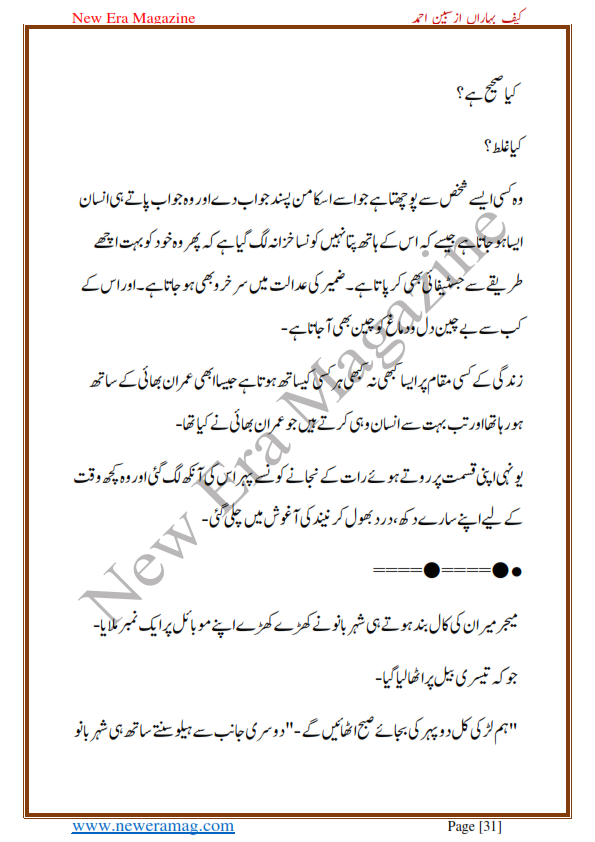 New Era Magazine
کیف بہاراں از سبین احمد
کیا صحیح ہے؟
کیا غلط؟
وہ کسی ایسے شخص سے پوچھتا ہے جو اسے اسکا من پسند جواب دے اور وہ جواب پاتے ہی انسان
ایسا ہو جاتا ہے جیسے کہ اس کے ہاتھ پتا نہیں کونسا خزانہ لگ گیا ہے کہ پھر وہ خود کو بہت اچھے
طریقے سے جسٹیفائی بھی کر پاتا ہے۔ ضمیر کی عدالت میں سر خرو بھی ہو جاتا ہے۔ اور اس کے
کب سے بے چین دل و دماغ کو چین بھی آجاتا ہے-
زندگی کے کسی مقام پر ایسا کبھی نہ کبھی ہر کسی کیساتھ ہوتا ہے جیسا ابھی عمران بھائی کے ساتھ
ہو رہا تھا اور تب بہت سے انسان وہی کرتے ہیں جو عمران بھائی نے کیا تھا-
یونہی اپنی قسمت پر روتے ہوئے رات کے نجانے کونسے پہر اس کی آنکھ لگ گئی اور وہ کچھ وقت
کے لیے اپنے سارے دکھ، درد بھول کر نیند کی آغوش میں چلی گئی-
●●====●====
میجر میران کی کال بند ہوتے ہی شہر بانو نے کھڑے کھڑے اپنے موبائل پر ایک نمبر ملایا-
جو کہ تیسری بیل پر اٹھا لیا گیا-
"ہم لڑکی کل دوپہر کی بجائے صبح اٹھائیں گے-"دوسری جانب سے ہیلو سنتے ساتھ ہی شہر بانو
New Era Magazine
www.neweramag.com
Page [31]